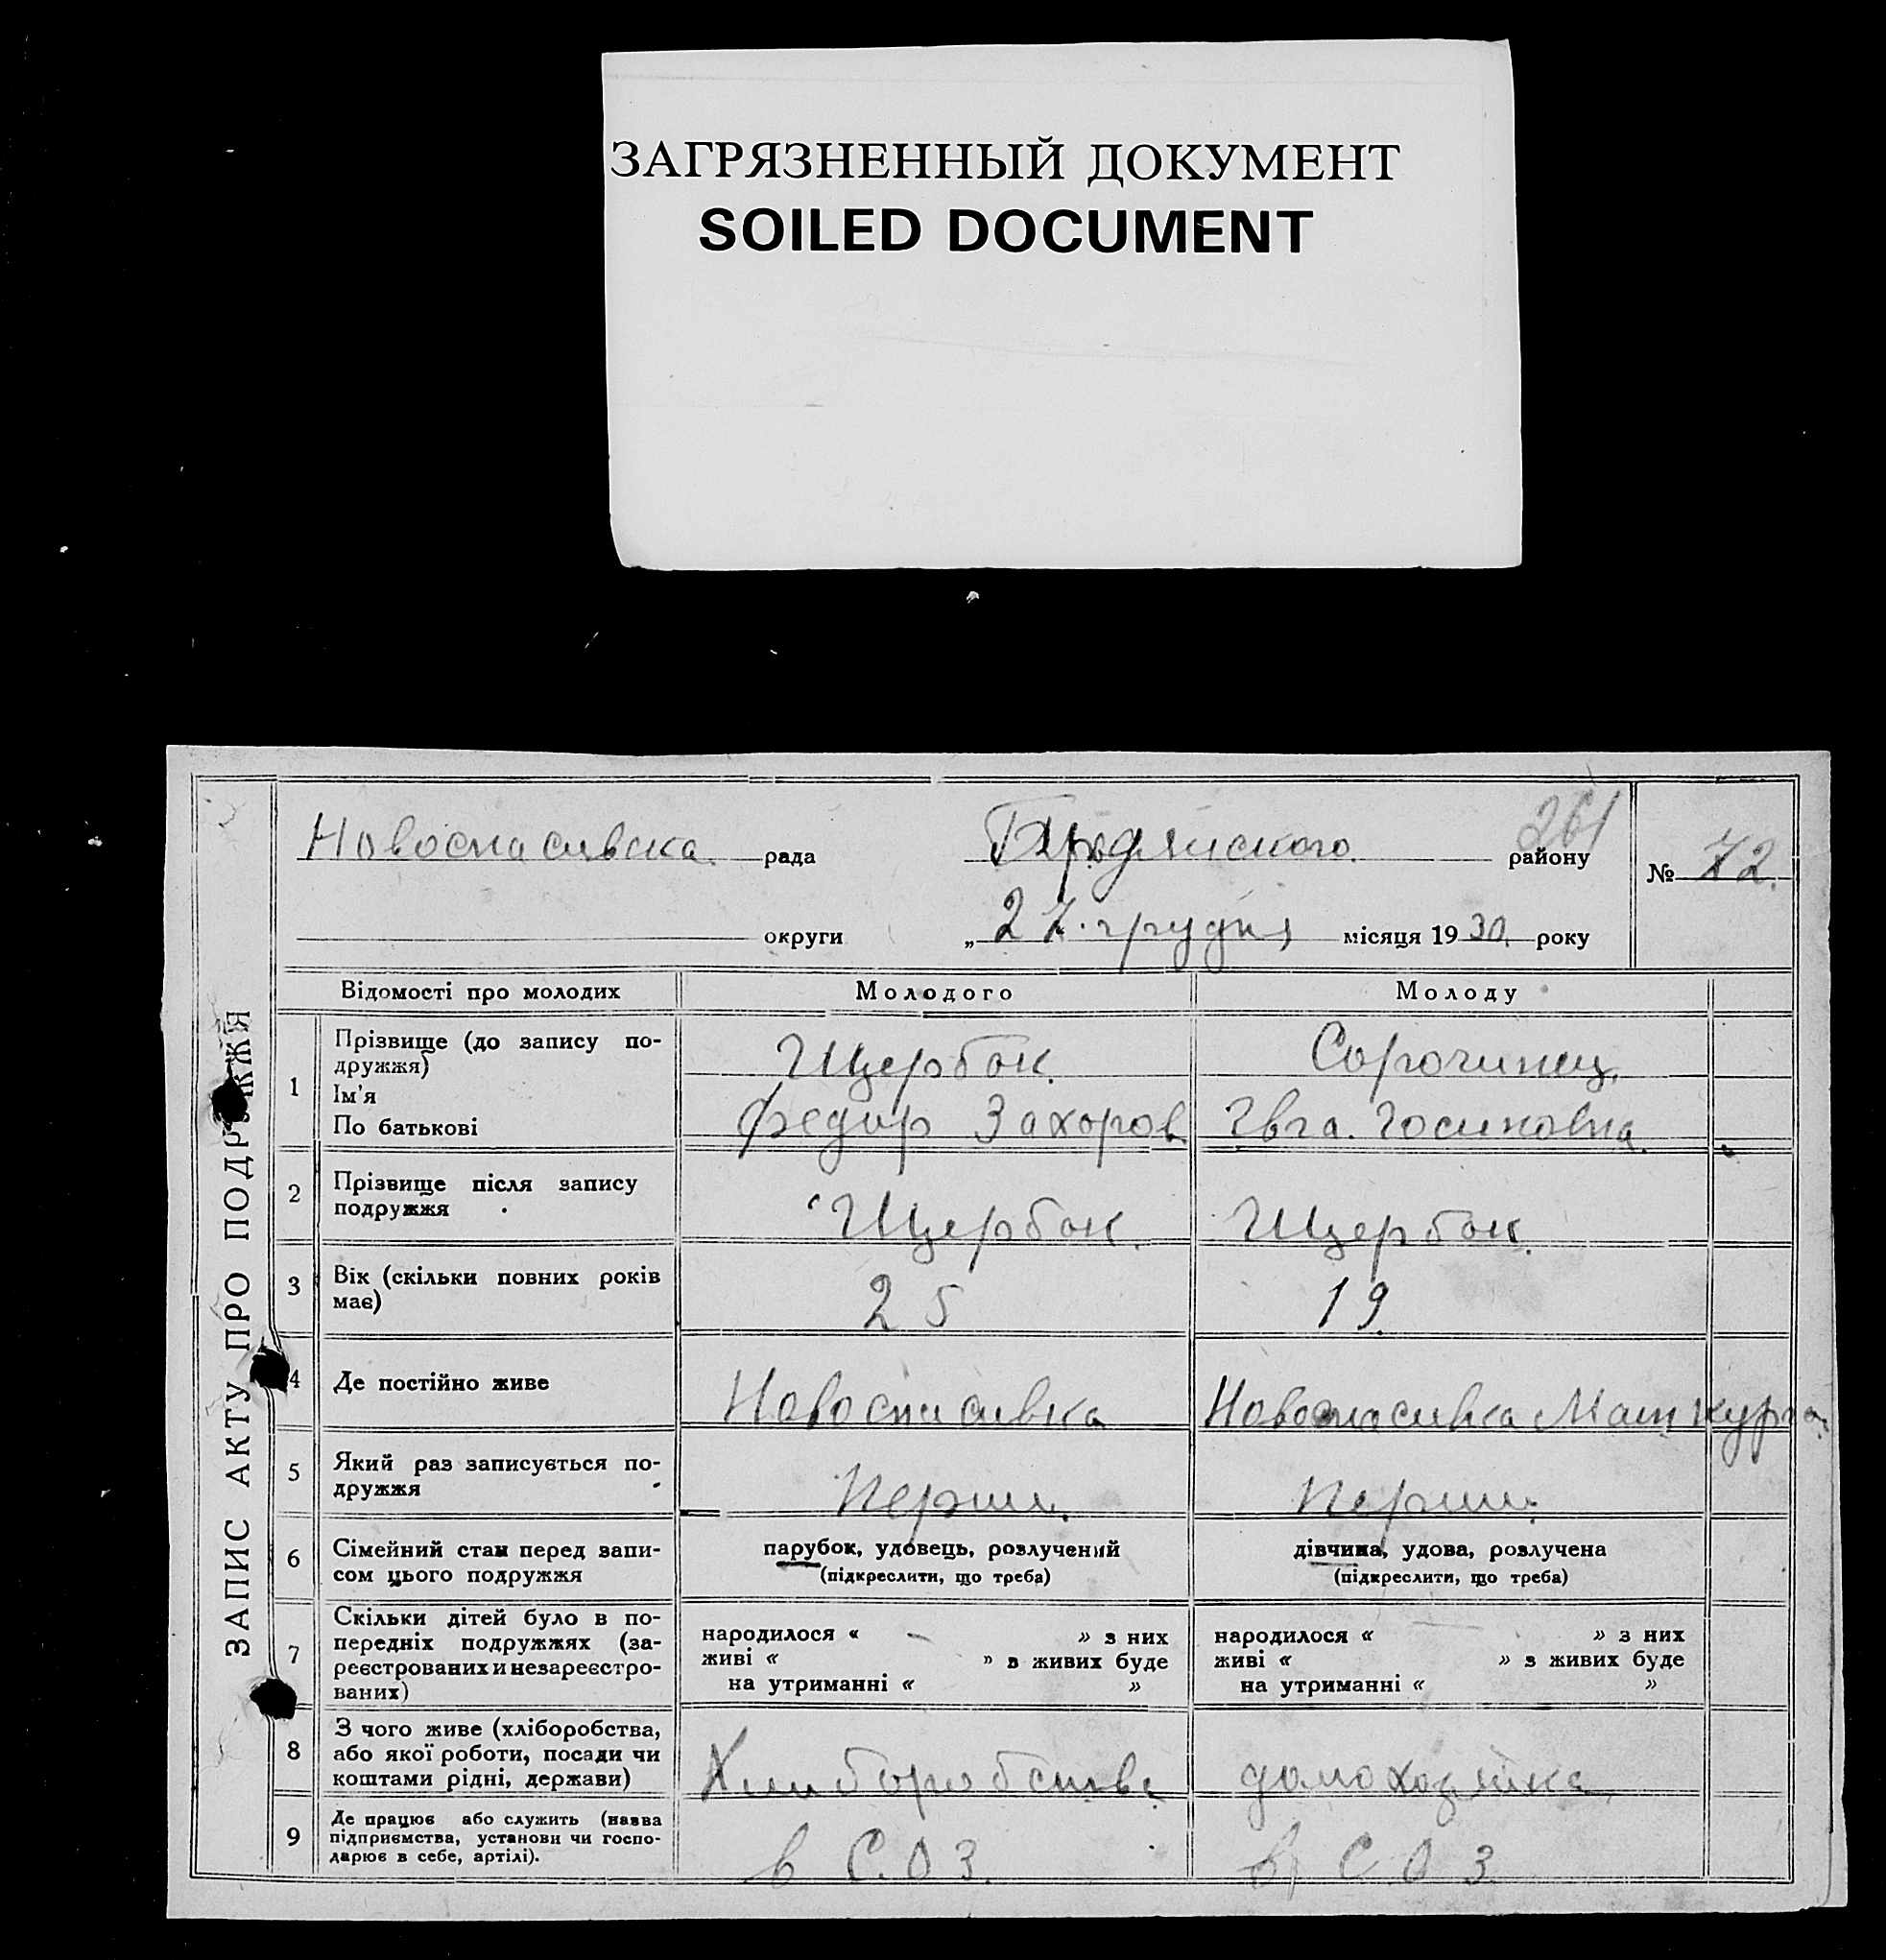 ЗАГРЯЗНЕННЫЙ ДОКУМЕНТ
SOILED DOCUMENT
261
Новоспасивска рада району № 72.
округи „27. грудня місяця 1930. року
ЗАПИС АКТУ ПРО ПОДРУЖЖЯ
Відомості про молодих Молодого Молоду
1 Прізвище (до запису по-
дружжя) Щербак. Сорочинец.
Ім'я
По батькові Федир Захоров
2 Прізвище після запису
подружжя Щербак. Щербак.
3 Вік (скільки повних років
має) 25 19
4 Де постійно живе Новоспасивка Новоспасивка
5 Який раз записується по-
дружжя Перши. Перши.
6 Сімейний стан перед запи-
сом цього подружжя
парубок, удовець, розлучений
(підкреслити, що треба)
дівчина, удова, розлучена
(підкреслити, що треба)
7 Скільки дітей було в по-
передніх подружжях (за-
реєстрованих и незареєстро-
ваних)
народилося « - » з них
живі « » з живих буде
на утриманні « »
народилося « » з них
живі « » з живих буде
на утриманні « »
8 З чого живе (хліборобства,
або якої роботи, посади чи
коштами рідні, держави) домохозяйка
9 Де працює або служить (назва
підприємства, установи чи госпо-
дарює в себе, артілі). в С.О.З. в С.О.З.